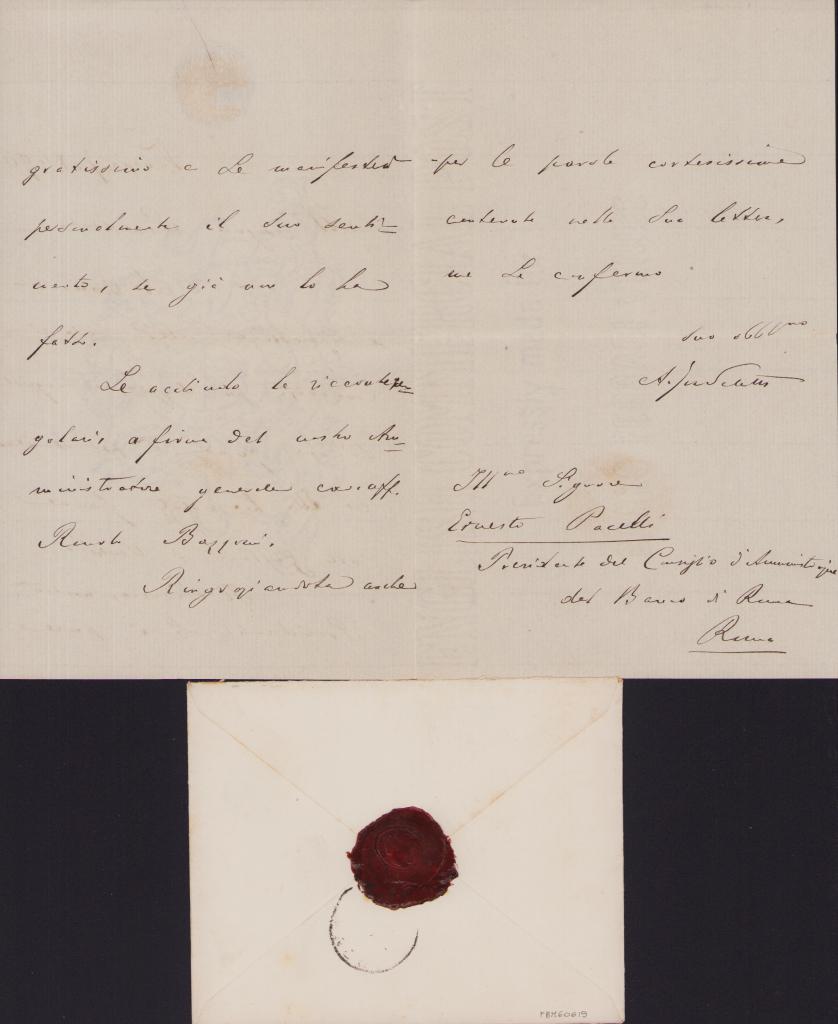 gratissimo e Le manifesterà
personalmente il suo senti=
mento, se già non lo ha
fatto.
Le accludo le ricevute re=
golari, a firma del nostro Am=
ministratore generale cav. aff.
Renato Bazzoni.
Ringraziandola anche
per le parole cortesissime
contenute nella Sua lettera,
me Le confermo
suo obbl̃mo
Ill.mo Signore
Ernesto Pacelli
Presidente del Consiglio d'Amministrazione
del Banco di Roma
Roma
FBM60619